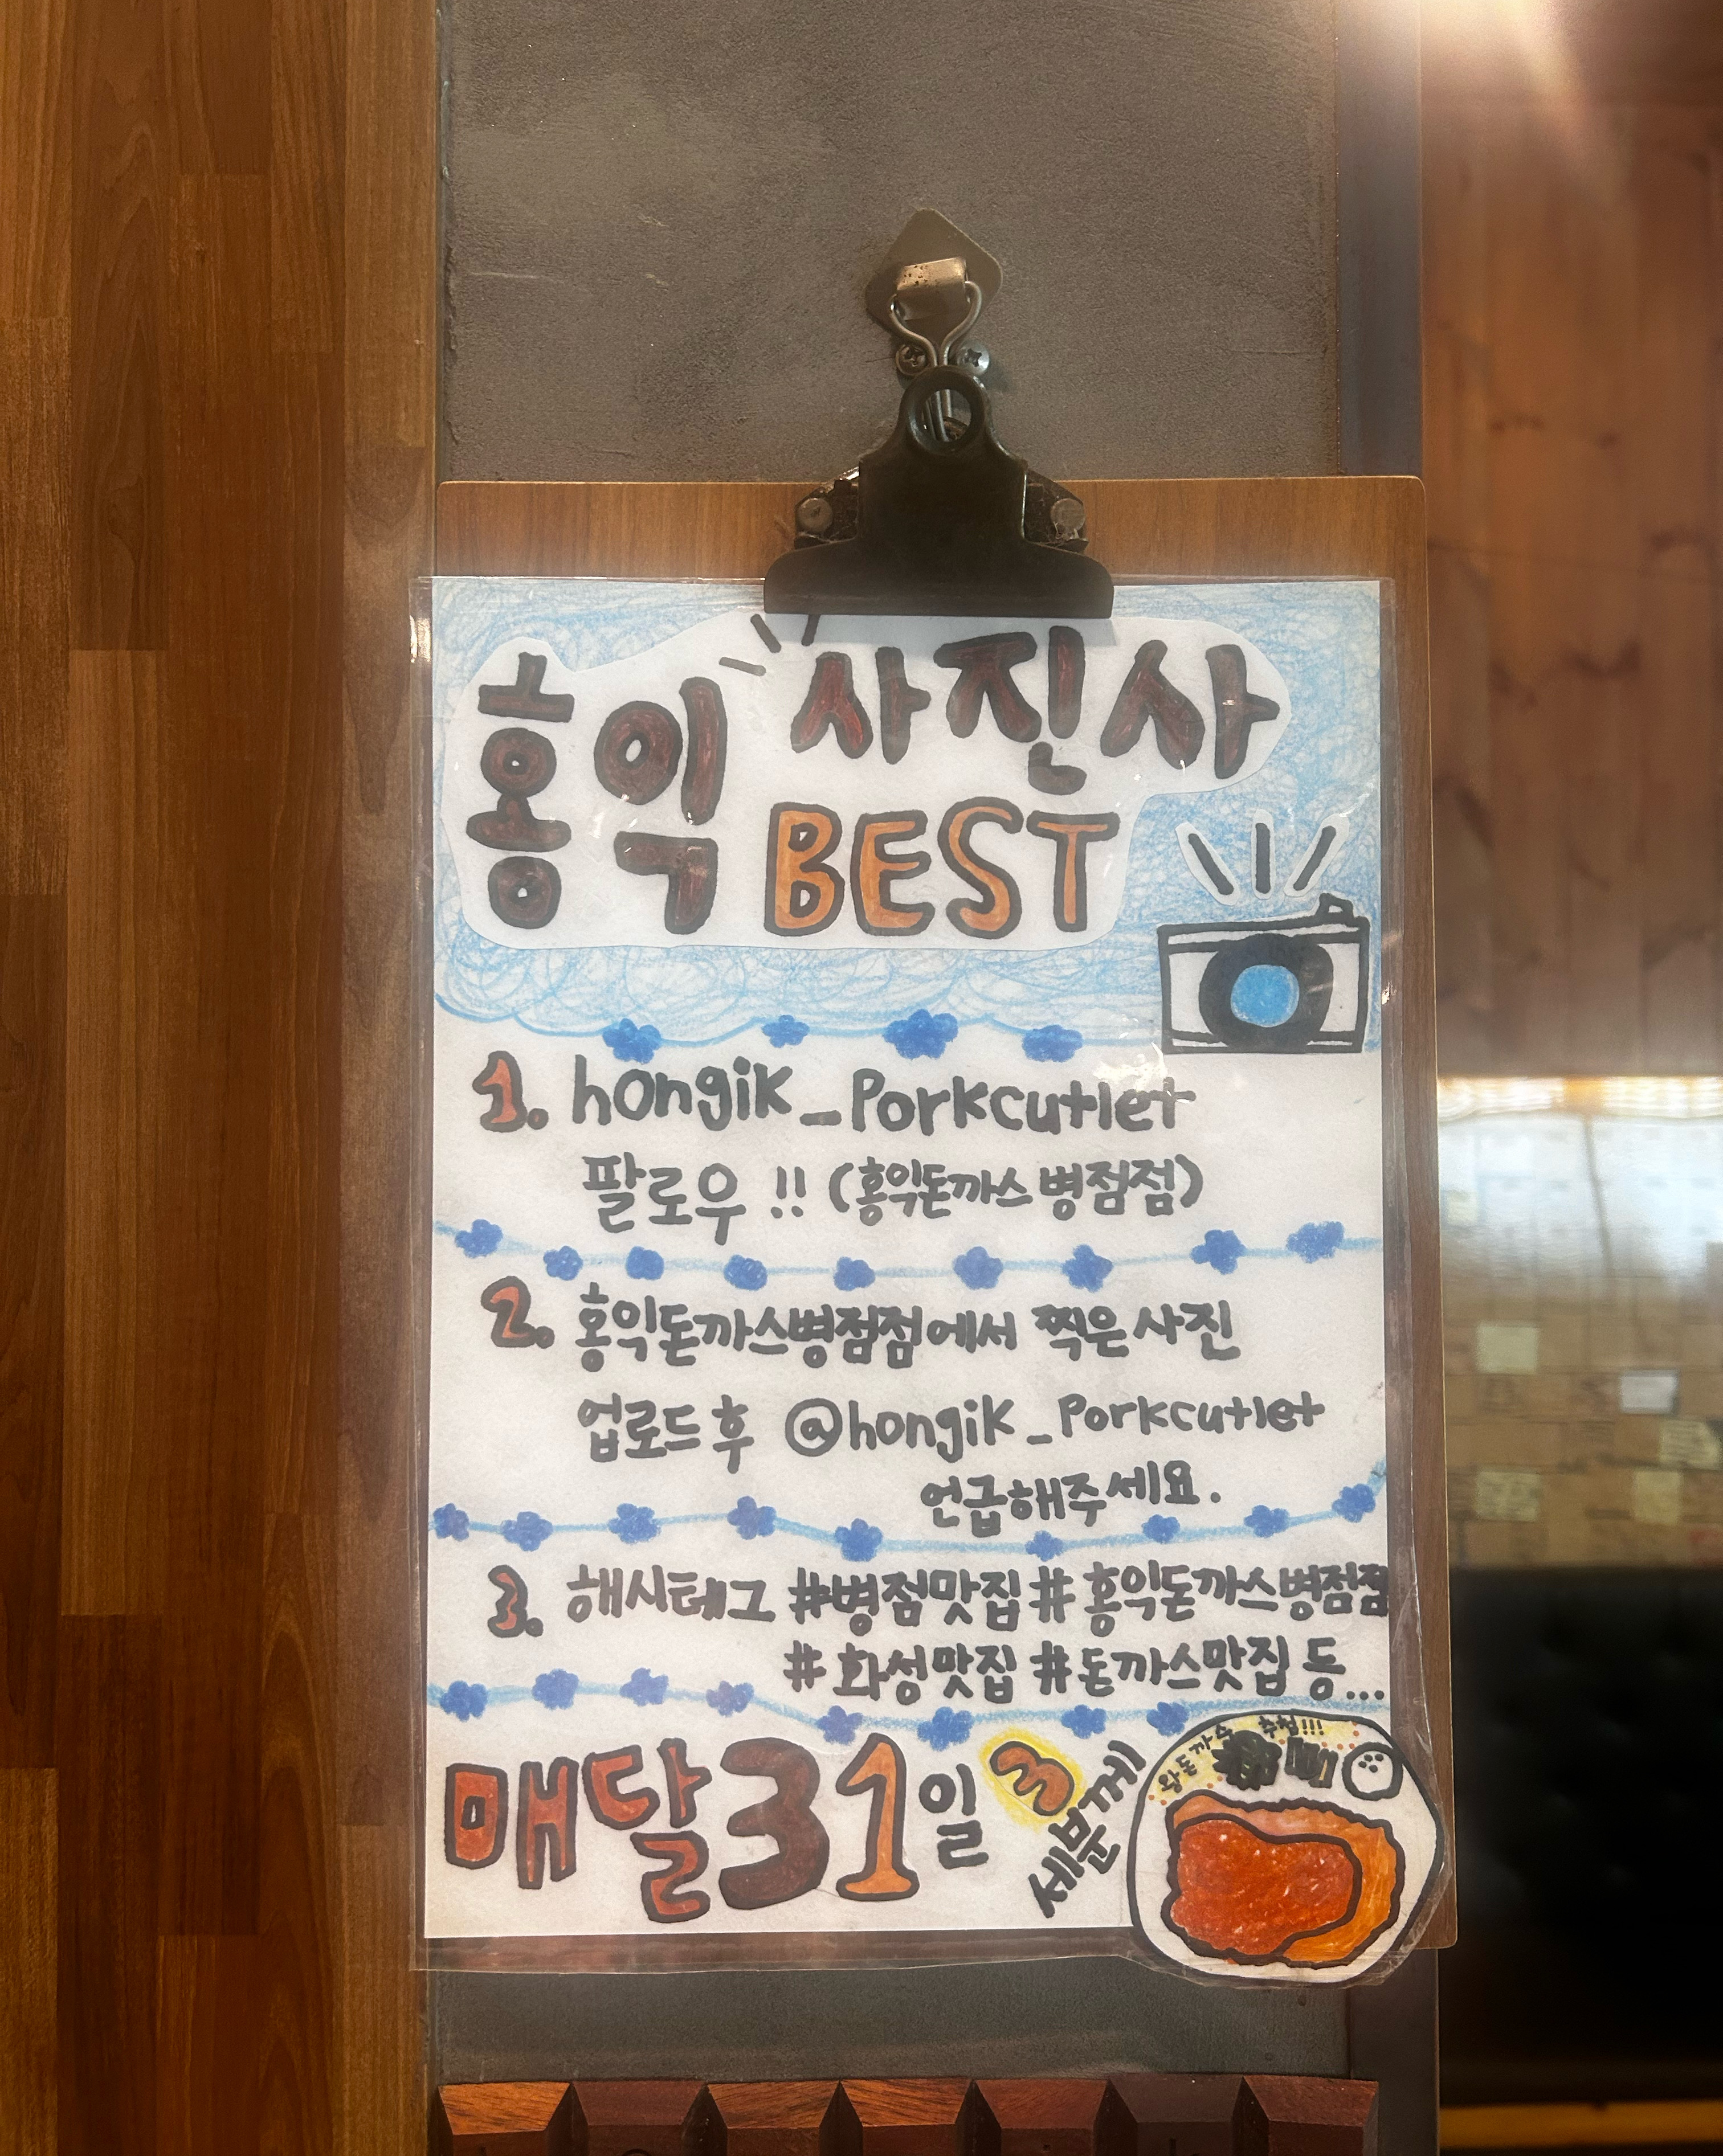 홍익 사진사
BEST
1. hongik_Porkcutlet
팔로우 !! (홍익돈까스 병점점)
2. 홍익돈까스병점점에서 찍은 사진
업로드 후 @hongik_Porkcutlet
언급해주세요.
3. 해시태그 #병점맛집 # 홍익돈까스병점점
# 화성맛집 # 돈까스맛집 등...
매달 31일 3
세분께
왕돈까스 추첨!!!